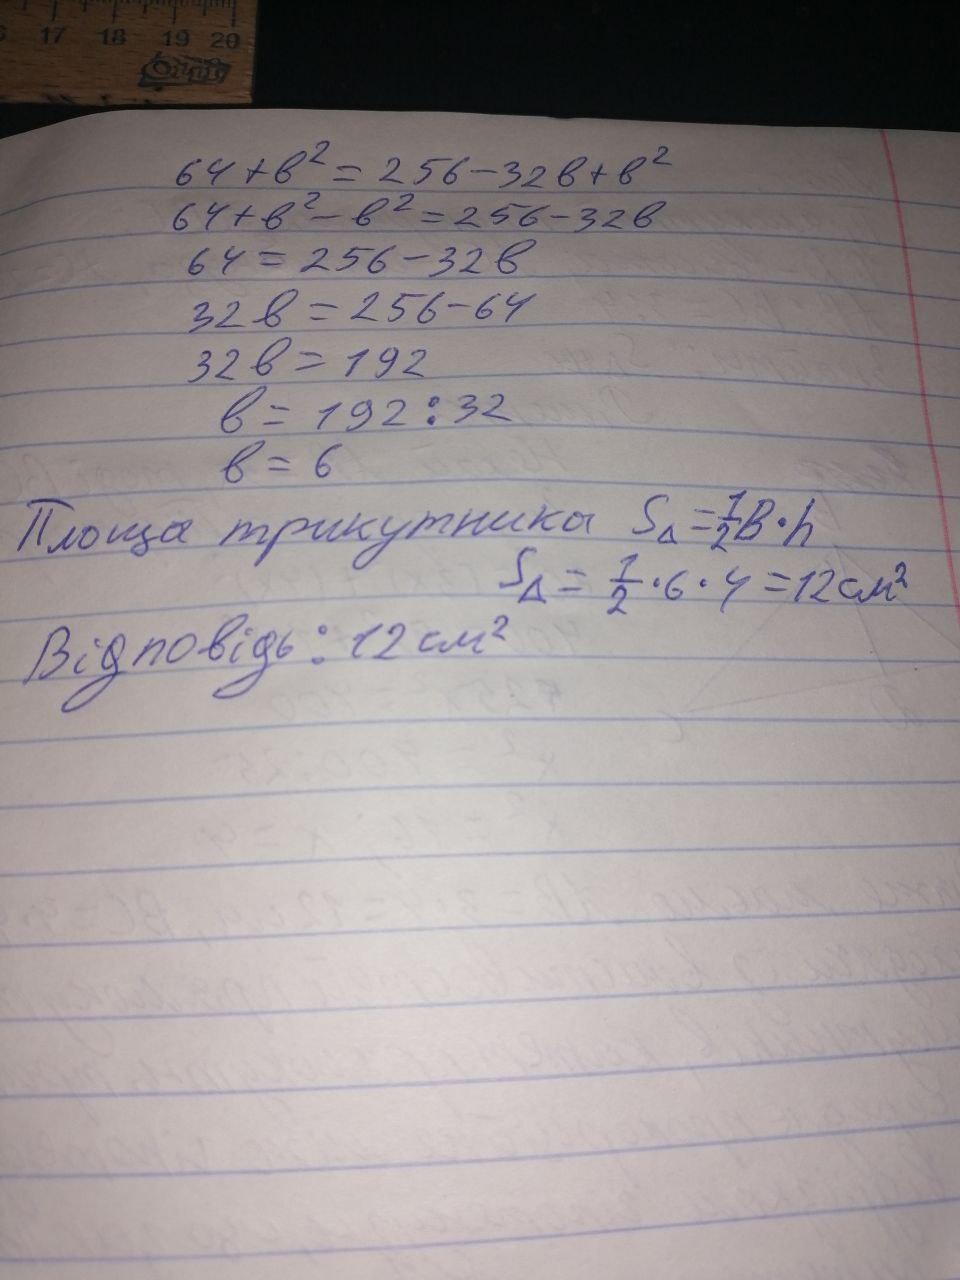 17 18 19 20
64+в²=256-32в+в²
64+в²-в²=256-32в
64=256-32в
32в=256-64
32в=192
в=192:32
в=6
Площа трикутника S△=1/2в·h
S△=1/2·6·4=12см²
Відповідь: 12см²